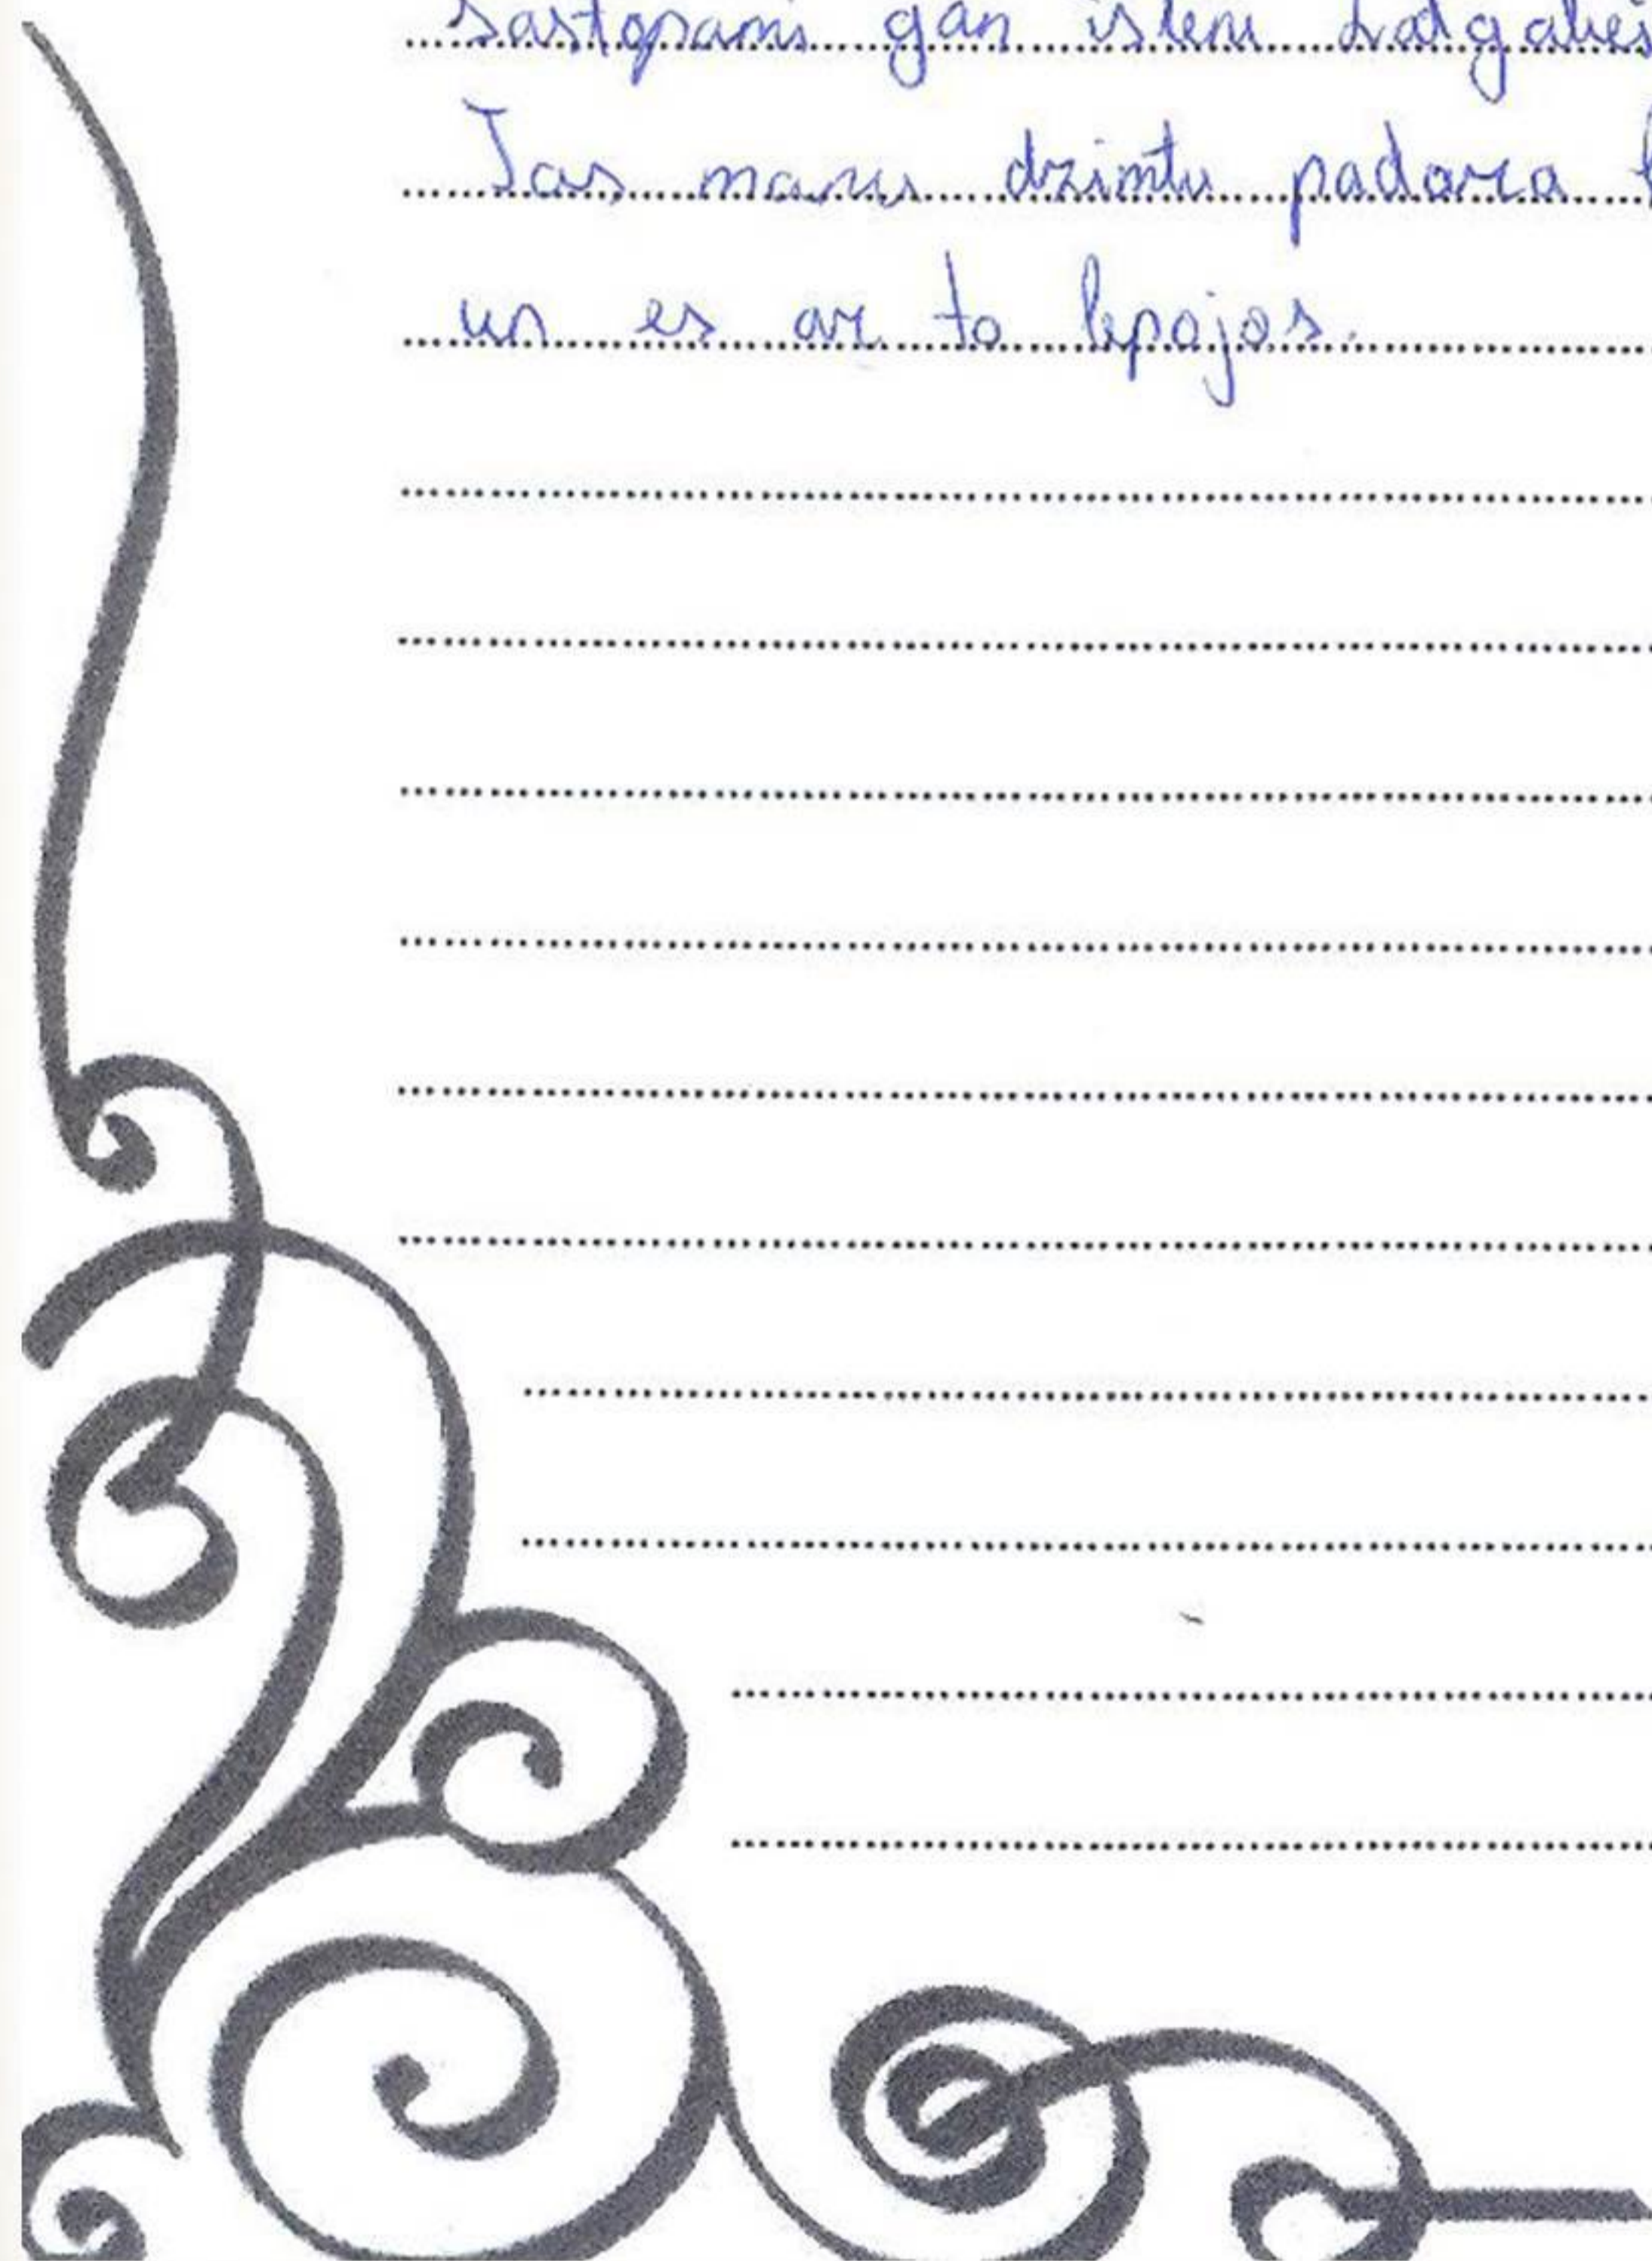 sastopami gan īsteni Latgalieš
Tas manu dzimtu padara
un es ar to lepojos.